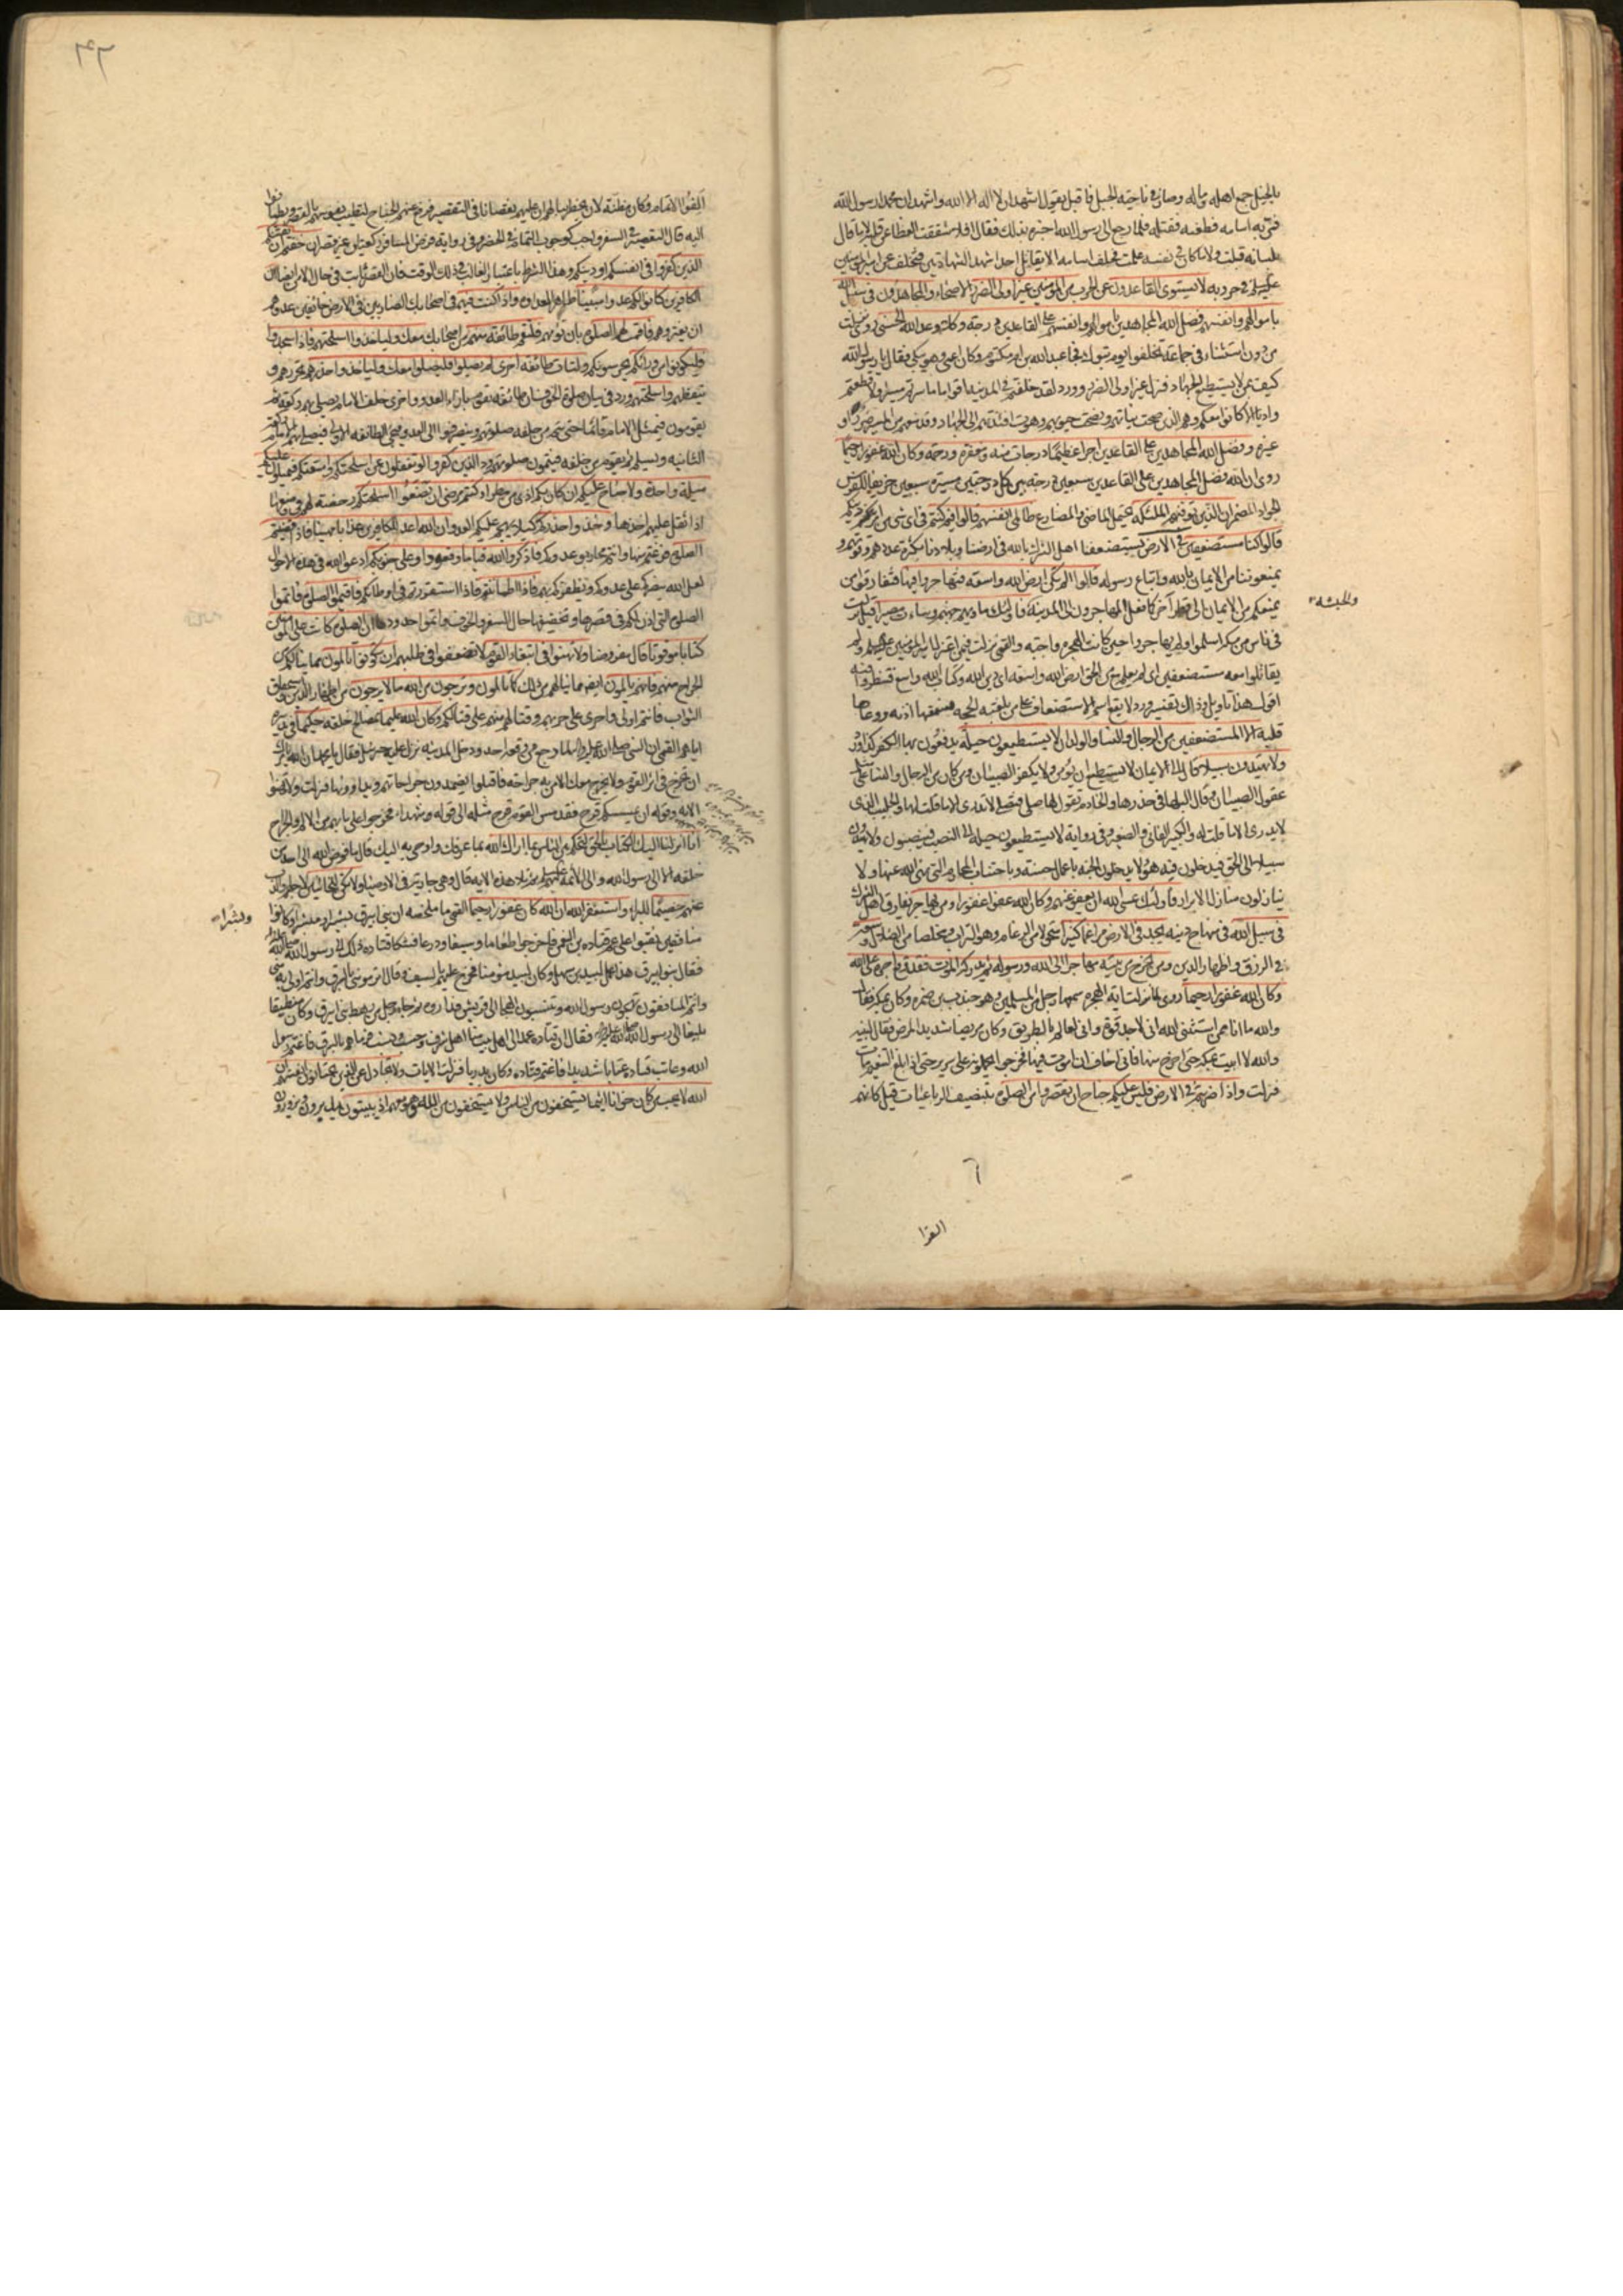 بالجبل جمع اهله وماله وصار في ناحية الجبل فاقبل يقول اشهد ان لا اله الا الله واشهد ان محمدا رسول الله
فمر به اسامه فطعنه فقتله فلما رجع الى رسول الله اخبره بذلك فقال افلا شققت الغطا عن قلبه لا ما قال
بلسانه قبلت ولا ما كان في نفسه علمت فحلف اسامه الا يقاتل احدا شهد الشهادتين فتخلف عن امير المؤمنين
عليه السلم في حروبه لا يستوى القاعدون عن الحرب من المؤمنين غير اولى الضرر الاصحاء والمجاهدون فى سبيل الله
باموالهم وانفسهم فضل الله المجاهدين باموالهم وانفسهم على القاعدين درجة وكلا وعد الله الحسنى روى نزلت
من دون استثناء فى جماعة تخلفوا يوم تبوك فجا عبد الله بن ام مكتوم وكان اعمى وهو يبكى فقال يا رسول الله
كيف بمن لا يستطيع الجهاد فنزل غير اولى الضرر وورد لقد خلفتم فى المدينه اقواما ما سرتم مسيرا ولا قطعتم
واديا الا كانوا معكم وهم الذين صحت نياتهم ونصحت جيوبهم وهوت افئدتهم الى الجهاد وقد منعهم من المسير ضرر او
غيره وفضل الله المجاهدين على القاعدين اجرا عظيما درجات منه ومغفرة ورحمة وكان الله غفورا رحيما
روى ان الله فضل المجاهدين على القاعدين سبعين درجة بين كل درجتين مسيرة سبعين خريفا للفرس
الجواد المضمر ان الذين توفيهم الملئكة يحتمل الماضى والمضارع ظالمى انفسهم قالوا فيم كنتم فى اى شى من امر دينكم
قالوا كنا مستضعفين في الارض يستضعفنا اهل الشرك بالله فى ارضنا وبلادنا بكثرة عددهم وقوتهم و
يمنعوننا من الايمان بالله واتباع رسوله قالوا الم تكن ارض الله واسعة فتهاجروا فيها فتفارقوا من
يمنعكم من الايمان الى قطر آخر كما فعل المهاجرون الى المدينة فاولئك ماويهم جهنم وساءت مصيرا قيل نزلت
والحبشه
فى ناس من مكه اسلموا ولم يهاجروا حين كانت الهجرة واجبه والقمى نزلت فيمن اعتزل امير المؤمنين عليه السلم ولم
يقاتلوا معه مستضعفين اى لم نعلم مع من الحق ارض الله واسعه اى دين الله وكتاب الله واسع فتنظروا فيه
اقول هذا تأويل وذاك تفسير وورد لا يقع اسم الاستضعاف على من بلغته الحجه فسمعها اذنه ووعاها
قلبه الا المستضعفين من الرجال والنسا والولدان لا يستطيعون حيلة يدفعون بها الكفر كذا ورد
ولا يهتدون سبيلا قال الى الايمان لا يستطيع ان يؤمن ولا يكفر الصبيان ومن كان من الرجال والنسا على مثل
عقول الصبيان وقال البلهاء فى خدرها والخادم تقول لها صلى فتصلى لا تدرى الا ما قلت لها والجليب الذى
لا يدرى الا ما قلت له والكبير الفانى والصغير وفى رواية لا يستطيعون حيلة الى النصب فينصبون ولا يهتدون
سبيلا الى الحق فيدخلون فيه هؤلا يدخلون الجنه باعمال حسنه وباجتناب المحارم التى نهى الله عنها ولا
ينالون منازل الابرار فاولئك عسى الله ان يعفو عنهم وكان الله عفوا غفورا ومن يهاجر يفارق اهل الشرك
فى سبيل الله فى منهاج دينه يجد فى الارض مراغما كثيرا متحولا من الرغام وهو التراب ومخلصا من الضلال وسعة
فى الرزق واظهار الدين ومن يخرج من بيته مهاجرا الى الله ورسوله ثم يدركه الموت فقد وقع اجره على الله
وكان الله غفورا رحيما روى لما نزلت اية الهجره سمعها رجل من المسلمين وهو جندب بن ضمره وكان بمكه فقال
والله ما انا ممن استثنى الله انى لاجد قوة وانى لعالم بالطريق وكان مريضا شديد المرض فقال لبنيه
والله لا ابيت بمكه حتى اخرج منها فانى اخاف ان اموت فيها فخرجوا يحملونه على سرير حتى اذا بلغ التنعيم مات
فنزلت واذا ضربتم فى الارض فليس عليكم جناح ان تقصروا من الصلوة بتنصيف الرباعيات قيل كانهم
الفوا
الفوا الاتمام وكان مظنة لان يخطر ببالهم ان عليهم نقصانا فى التقصير فرفع عنهم الجناح لتطيب نفوسهم بالقصر ويطمئنوا
اليه قال التقصير فى السفر واجب كوجوب التمام فى الحضر وفى رواية فرض المسافر ركعتان غير قصر ان خفتم ان يفتنكم
الذين كفروا فى انفسكم او دينكم وهذا الشرط باعتبار الغالب فى ذلك الوقت فان القصر ثابت فى حال الامن ايضا ان
الكافرين كانوا لكم عدوا مبينا ظاهر العداوه واذا كنت فيهم فى اصحابك الضاربين فى الارض خائفين عدوهم
ان يغتروهم فاقمت لهم الصلوة بان تؤمهم فلتقم طائفة منهم من اصحابك معك وليأخذوا اسلحتهم فاذا سجدوا
فليكونوا من ورائكم يحرسونكم ولتات طائفة اخرى لم يصلوا فليصلوا معك وليأخذوا حذرهم تحرزهم و
تيقظهم واسلحتهم ورد فى بيان صلوة الخوف ان طائفة تقوم بازاء العدو واخرى خلف الامام يصلى بهم ركعة ثم
يقومون فيمثل الامام قائما حتى يتم من خلفه صلوتهم وينصرفوا الى العدو وتجئ الطائفه الاولى فيصلى بهم الامام ركعته
الثانيه ويسلم ثم يقوم من خلفه فيتمون صلوتهم ود الذين كفروا لو تغفلون عن اسلحتكم وامتعتكم فيميلون عليكم
ميلة واحدة ولا جناح عليكم ان كان بكم اذى من مطر او كنتم مرضى ان تضعوا اسلحتكم رخصة لهم فى وضعها
اذا ثقل عليهم اخذها وخذوا حذركم كيلا يهجم عليكم العدو ان الله اعد للكافرين عذابا مهينا فاذا قضيتم
الصلوة فرغتم منها وانتم محاربو عدوكم فاذكروا الله قياما وقعودا وعلى جنوبكم ادعوا الله فى هذه الاحوال
لعل الله ينصركم على عدوكم ويظفركم بهم فاذا اطماننتم فاذا استقررتم فى اوطانكم فاقيموا الصلوة فاتموا
الصلوة التى اذن لكم فى قصرها وتخفيفها حال السفر والخوف واتموا حدودها ان الصلوة كانت على المؤمنين
كتابا موقوتا قال مفروضا ولا تهنوا فى ابتغاء القوم لا تضعفوا فى طلبهم ان تكونوا تالمون مما ينالكم من
الجراح منهم فانهم يالمون ايضا مما ينالهم من ذلك كما تالمون وترجون من الله ما لا يرجون من اظهار الدين واستحقاق
الثواب فانتم اولى واحرى على حربهم وقتالهم منهم على قتالكم وكان الله عليما بمصالح خلقه حكيما فى تدبيره
اياهم القمى ان النبى صلى الله عليه واله لما رجع من وقعة احد ودخل المدينه نزل عليه جبرئيل فقال يا محمد ان الله يامرك
ان تخرج فى اثر القوم ولا يخرج معك الا من به جراحة فاقبلوا يضمدون جراحاتهم ويداوونها فنزلت ولا تهنوا
الايه وقوله ان يمسسكم قرح فقد مس القوم قرح مثله الى قوله وشهداء فخرجوا على ما بهم من الالم والجراح
انا انزلنا اليك الكتاب بالحق لتحكم بين الناس بما اراك الله بما عرفك واوحى به اليك قال ما فوض الله الى احد من
خلقه الا الى رسول الله والى الائمة عليهم السلم ثم تلا هذه الايه قال وهى جارية فى الاوصياء ولا تكن للخائنين لاجلهم والذب
عنهم خصيما للبرآء واستغفر الله ان الله كان غفورا رحيما القمى ما ملخصه ان بنى ابيرق بشيرا ومبشرا وكانوا
وبشرا
منافقين نقبوا على عم قتاده بن النعمن فاخرجوا طعاما وسيفا ودرعا فشكا قتاده ذلك الى رسول الله صلى الله عليه واله
فقال بنو ابيرق هذا عمل لبيد بن سهل وكان لبيد مؤمنا فخرج عليهم بالسيف وقال اترموننى بالسرق وانتم اولى به منى
وانتم المنافقون تهجون رسول الله وتنسبون الهجا الى قريش فداروه ثم جاء رجل من رهط بنى ابيرق وكان منطيقا
بليغا الى رسول الله صلى الله عليه واله فقال ان قتاده عمد الى اهل بيت منا اهل شرف وحسب ونسب فرماهم بالسرق فاغتم رسول
الله وعاتب قتاده عتابا شديدا فاغتم قتاده وكان بدريا فنزلت الايات ولا تجادل عن الذين يختانون انفسهم ان
الله لا يحب من كان خوانا اثيما يستخفون من الناس ولا يستخفون من الله وهو معهم اذ يبيتون يدبرون ويزورون